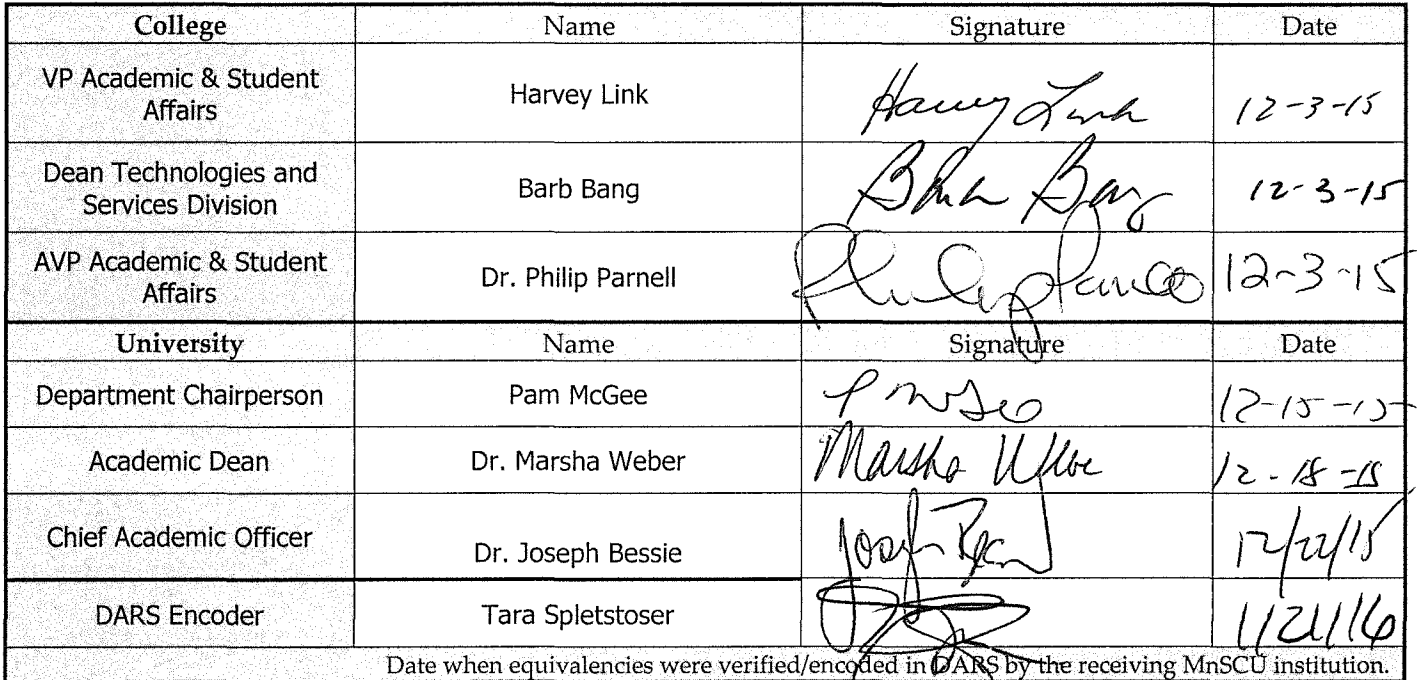 College Name Signature Date
VP Academic & Student
Affairs
Harvey Link Harvey Link 12-3-15
Dean Technologies and
Services Division
Barb Bang Barb Bang 12-3-15
AVP Academic & Student
Affairs
Dr. Philip Parnell 12-3-15
University Name Signature Date
Department Chairperson Pam McGee 12-15-15
Academic Dean Dr. Marsha Weber Marsha Weber 12-18-15
Chief Academic Officer Dr. Joseph Bessie Joseph 12/22/15
DARS Encoder Tara Spletstoser 1/21/16
Date when equivalencies were verified/encoded in DARS by the receiving MnSCU institution.